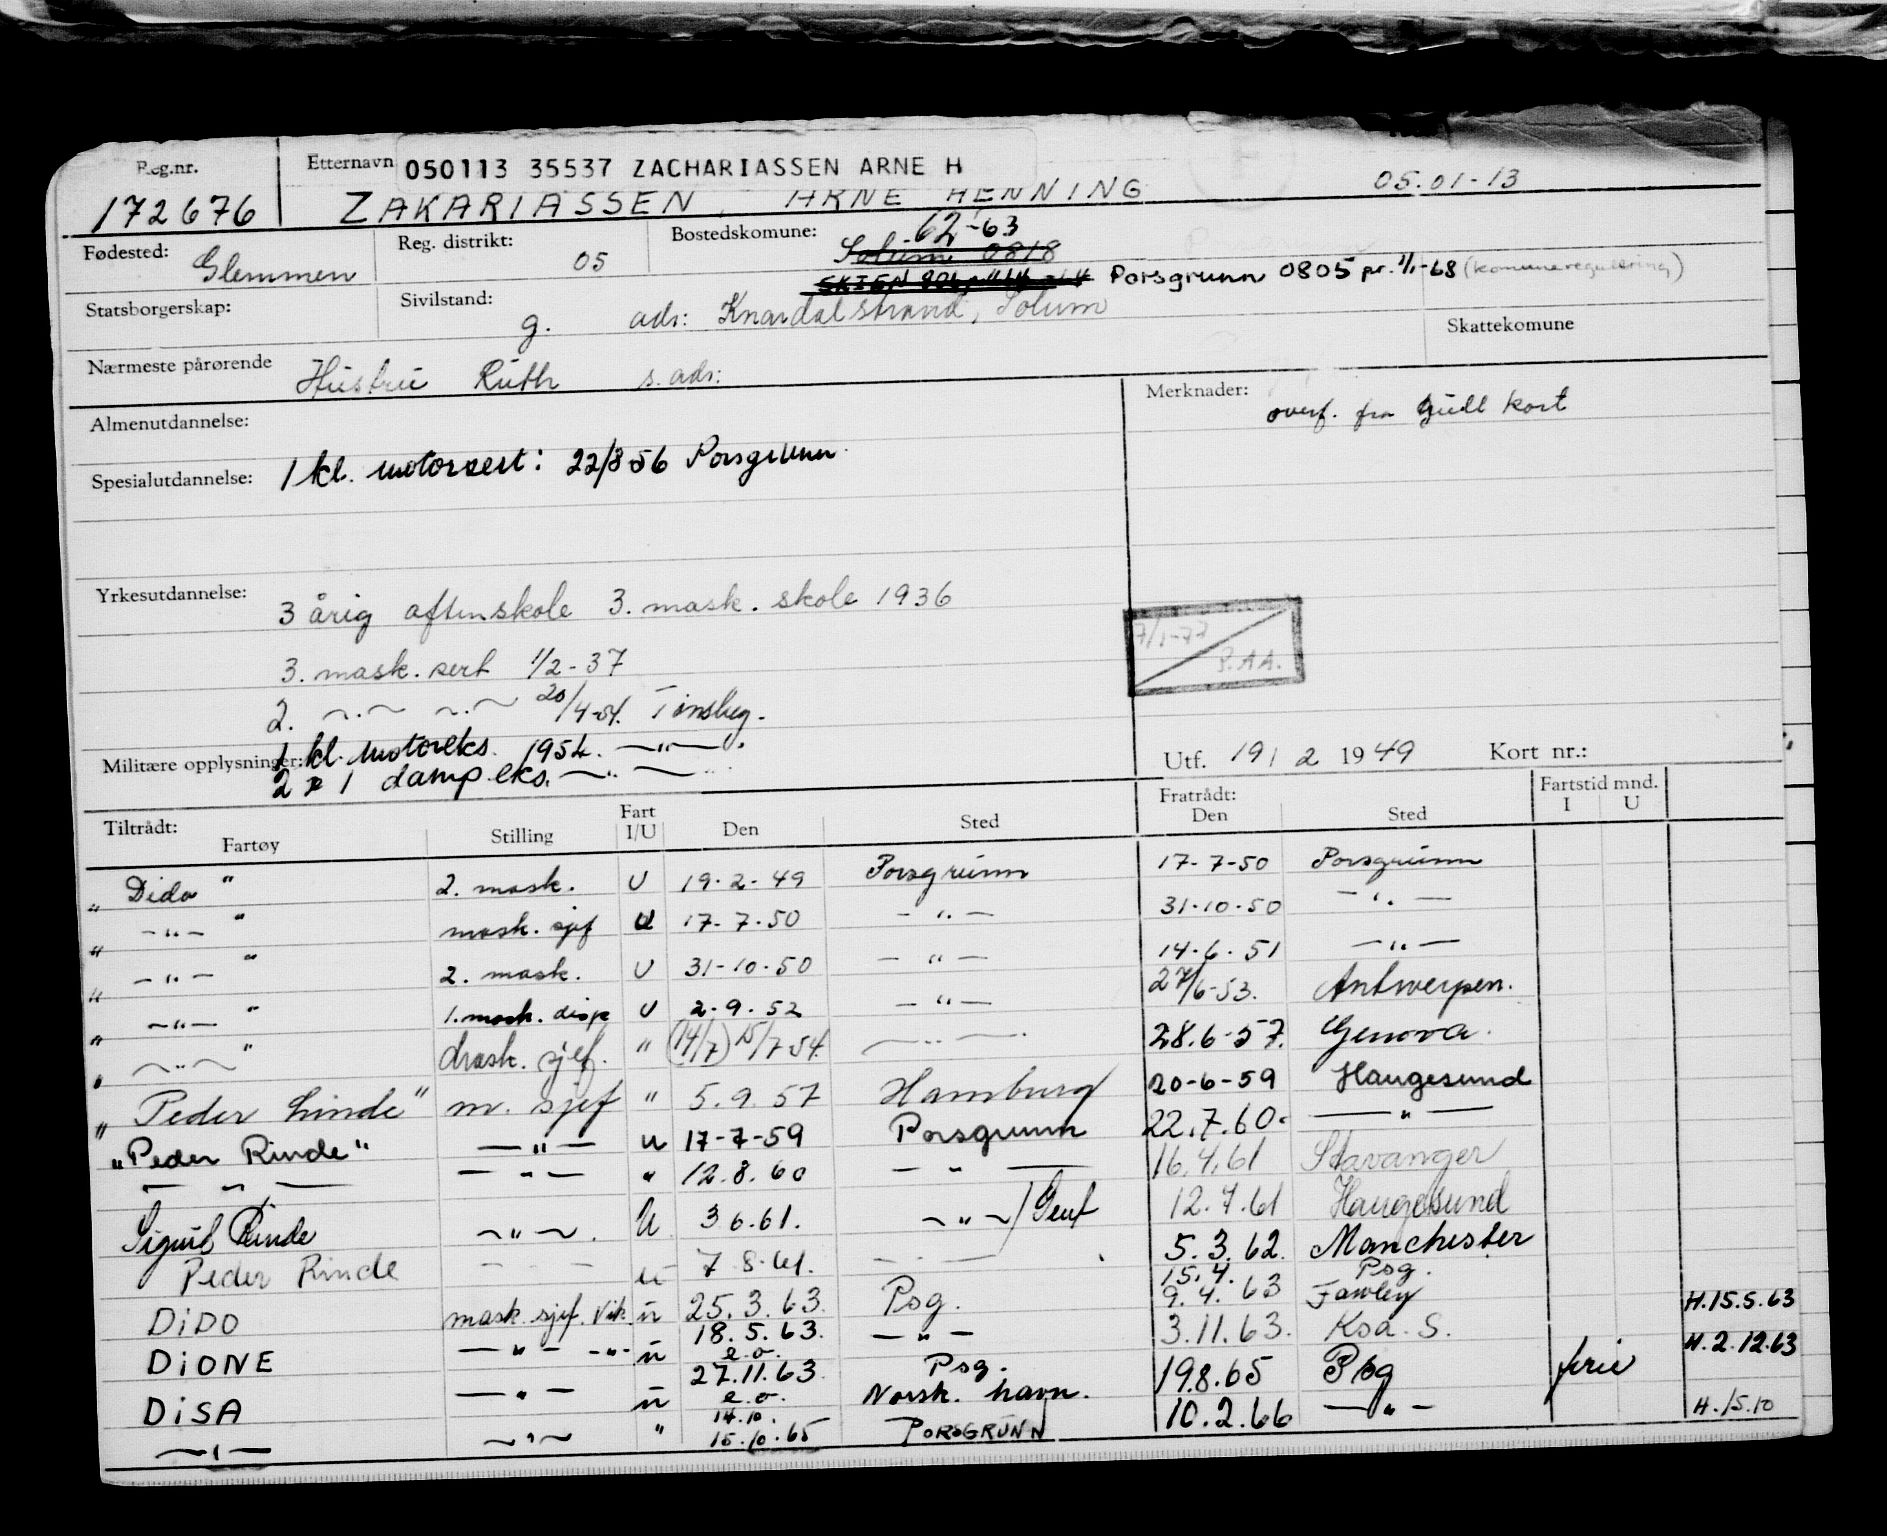 Reg.nr. Etternavn 050113 35537 ZACHARIASSEN ARNE H
172676 ZAKARIASSEN, ARNE HENNING 05.01-13
Fødested: Glemmen Reg. distrikt: 05 Bostedskomune: 62-63
Solum 0818
Porsgrunn 0805 pr. 1/1-68 (kommuneregulering)
Statsborgerskap: Sivilstand: g. adr: Knardalstrand, Solum
Skattekomune
Nærmeste pårørende Hustru Ruth s. adr:
Almenutdannelse: Merknader: overf. fra gult kort
Spesialutdannelse: 1 kl. motorsert: 22/8 56 Porsgrunn
Yrkesutdannelse: 3 årig aftenskole 3. mask. skole 1936
7/1-77
P.AA.
3. mask. sert 1/2-37
2. ~.~ ~.~ 20/4-54. Tønsbeg.
1 kl. motoreks. 1954. —"—
Militære opplysninger: 2 1 damp eks. —"—
Utf. 19/ 2 1949 Kort nr.:
Tiltrådt: Fratrådt: Fartstid mnd.
Fartøy Stilling Fart I/U Den Sted Den Sted I U
" Dido " 2. mask. U 19-2-49 Porsgrunn 17-7-50 Porsgrunn
" —"— " mask. sjef U 17-7-50 —"— 31-10-50 —"—
" —"— " 2. mask. U 31-10-50 —"— 14-6-51 —"—
" —"— " 1. mask. disp U 2-9-52 —"— 27/6-53. Antwerpen.
" —"— " mask. sjef. " (14/7) 15/7 54. —"— 28.6-57. Genova.
" Peder Rinde " m. sjef " 5.9.57 Hamburg 20-6-59 Haugesund
"Peder Rinde" —"— U 17-7-59 Porsgrunn 22.7.60. —"—
—"— —"— " 12.8.60 —"— 16.4.61 Stavanger
Sigurd Rinde —"—. U 3 6.61. —"—/Gent 12.7.61 Haugesund
Peder Rinde — — U 7 8.61. — — 5.3.62. Manchester
15.4. Psg.
DiDO mask. sjef. Vik. U 25.3.63. Psg. 9.4.63 Fawley H.15.5.63
DiONE —"— —"— U 18.5.63. e.o. —"— 3.11.63. Ksa. S. H.2.12.63
DiSA —"— U 27.11.63. e.o. Psg. Norsk. havn. 19.8.65 Psg
—"— —"— " 14.10. 15.10.65 PORSGRUNN 10.2.66 —"— H.15.10